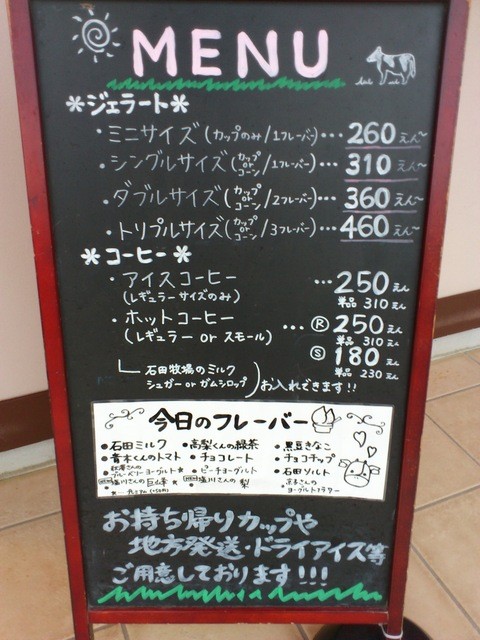 MENU
*ジェラート*
・ミニサイズ(カップのみ/1フレーバー)…260えん~
・シングルサイズ(カップorコーン/1フレーバー)…310えん~
・ダブルサイズ(カップorコーン/2フレーバー)…360えん~
・トリプルサイズ(カップorコーン/3フレーバー)…460えん~
*コーヒー*
・アイスコーヒー …250えん
(レギュラーサイズのみ) 単品 310えん
・ホットコーヒー …Ⓡ250えん
(レギュラー or スモール) 単品 310えん
Ⓢ180えん
単品 230えん
石田牧場のミルク
シュガー or ガムシロップ
お入れできます!!
今日のフレーバー
●石田ミルク ●高梨くんの緑茶 ●黒豆きなこ
●青木くんのトマト ●チョコレート ●チョコチップ
ブルーベリーヨーグルト★ ●ピーチヨーグルト ●石田ソルト
塩川さんの巨峰★ 塩川さんの梨
ヨーグルトフラワー
お持ち帰りカップや
地方発送・ドライアイス等
ご用意しております!!!